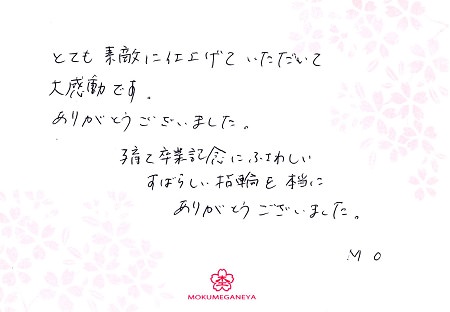 とても素敵に仕上げていただいて
大感動です。
ありがとうございました。
子育て卒業記念にふさわしい
すばらしい指輪を本当に
ありがとうございました。
M O
MOKUMEGANEYA